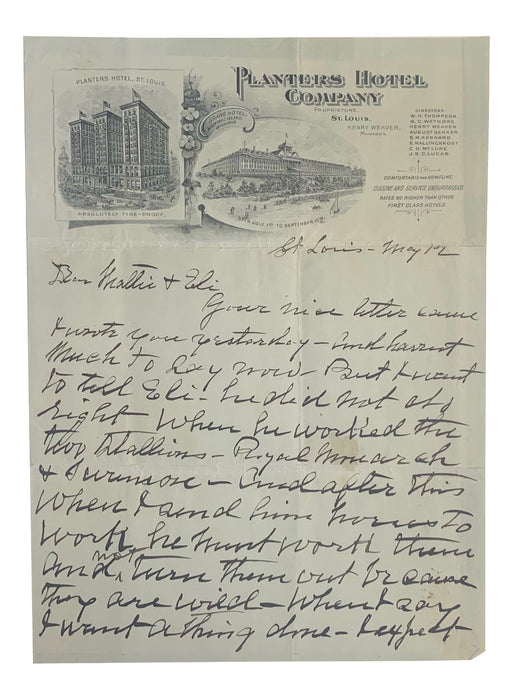 PLANTERS HOTEL, ST. LOUIS
ABSOLUTELY FIRE-PROOF.
PLANTERS HOTEL
COMPANY
PROPRIETORS.
ST. LOUIS.
HENRY WEAVER,
MANAGER.
HOTEL
JULY 1ST TO SEPTEMBER
DIRECTORS
W. H. THOMPSON,
HENRY WEAVER
AUGUST GEHNER
S. M. KENNARD
E. MALLINCKRODT
J. B. C. LUCAS.
COMFORTABLE AND HOMELIKE.
CUISINE AND SERVICE UNSURPASSED
RATES NO HIGHER THAN OTHER
FIRST CLASS HOTELS.
St Louis - May
Dear Mattie & Eli
Your nice letter came
I wrote you yesterday - and havent
Much to say now - But I want
to tell Eli - he did not do
right when he worked the
two Stallions - Royal Monarch
& - and after this
When I send him horses to
work he must work them
and not turn them out because
they are wild - When I say
I want a thing done - I expect